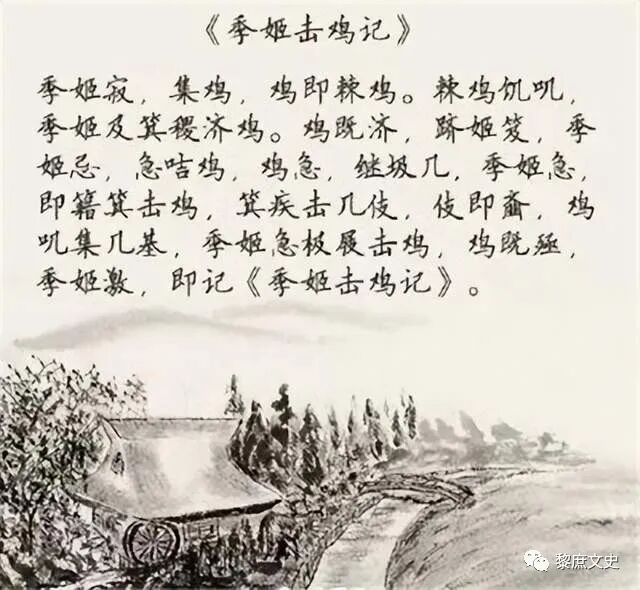 《季姬击鸡记》
季姬寂，集鸡，鸡即棘鸡。棘鸡饥叽，
季姬及箕稷济鸡。鸡既济，跻姬笈，季
姬忌，急咭鸡，鸡急，继圾几，季姬急，
即籍箕击鸡，箕疾击几伎，伎即齑，鸡
叽集几基，季姬急极屐击鸡，鸡既殛，
季姬激，即记《季姬击鸡记》。
黎庶文史